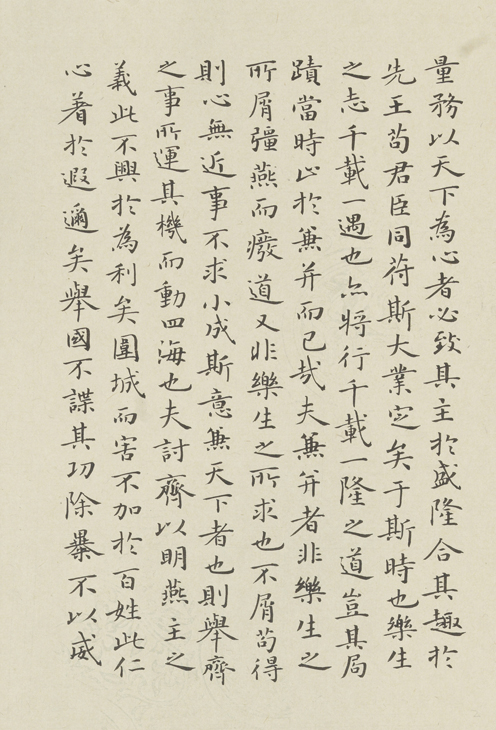 量務以天下為心者必致其主於盛隆合其趣於
先王苟君臣同苻斯大業定矣于斯時也樂生
之志千載一遇也亦將行千載一隆之道豈其局
蹟當時止於兼并而已哉夫兼并者非樂生之
所屑彊燕而癈道又非樂生之所求也不屑苟得
則心無近事不求小成斯意兼天下者也則舉齊
之事所運其機而動四海也夫討齊以明燕主之
義此不興於為利矣圍城而害不加於百姓此仁
心著於遐邇矣舉國不謀其功除暴不以威